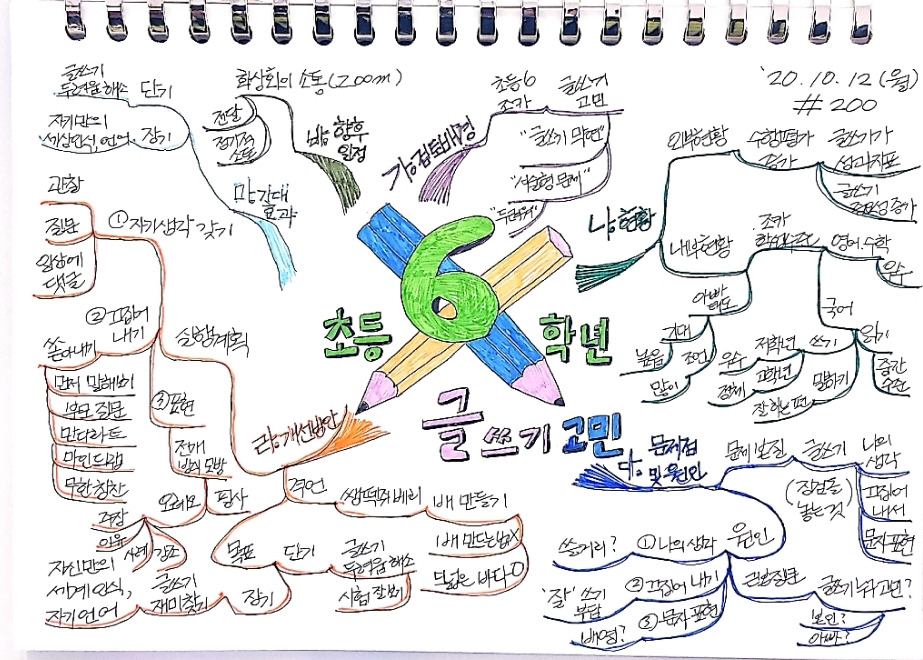 '20. 10. 12 (월)
# 200
초등 6 학년
글쓰기 고민
가. 검토배경
초등6
조카
글쓰기
고민
"글쓰기 막연"
"서술형 문제"
"두려워"
나. 현황
외부현황
수행평가
증가
글쓰기가
성과지표
글쓰기
중요성 증가
내부현황
조카
학업수준
영어, 수학
우수
국어
읽기
중간
수준
쓰기
저학년
우수
고학년
정체
말하기
잘하는 편
아빠
태도
기대
높음
조언
많이
다. 문제점
및 원인
문제본질
글쓰기
(점검을
낳는 것)
나의
생각
끄집어
내서
문자 표현
원인
① 나의 생각
쓸거리?
② 끄집어 내기
'잘' 쓰기
부담
③ 문자 표현
배영?
근본질문
글쓰기 누가 고민?
본인?
아빠?
라. 개선방안
격언
쌩떽쥐베리
배 만들기
배 만드는 법 X
드넓은 바다 O
목표
단기
글쓰기
두려움 해소
시험 잘보기
장기
글쓰기
재미찾기
자신만의
세계 인식,
자기언어
실행계획
① 자기생각 갖기
관찰
질문
일상에
댓글
② 끄집어
내기
쏟아내기
먼저 말해보기
부모 질문
만다라트
마인드맵
무한 칭찬
③ 표현
전개
방식 모방
필사
오레오
주장
이유
사례
강조
마. 기대
효과
단기
글쓰기
두려움 해소
장기
자기만의
세상인식, 언어
바. 향후
일정
화상회의 소통 (Zoom)
전달
정기적
소통